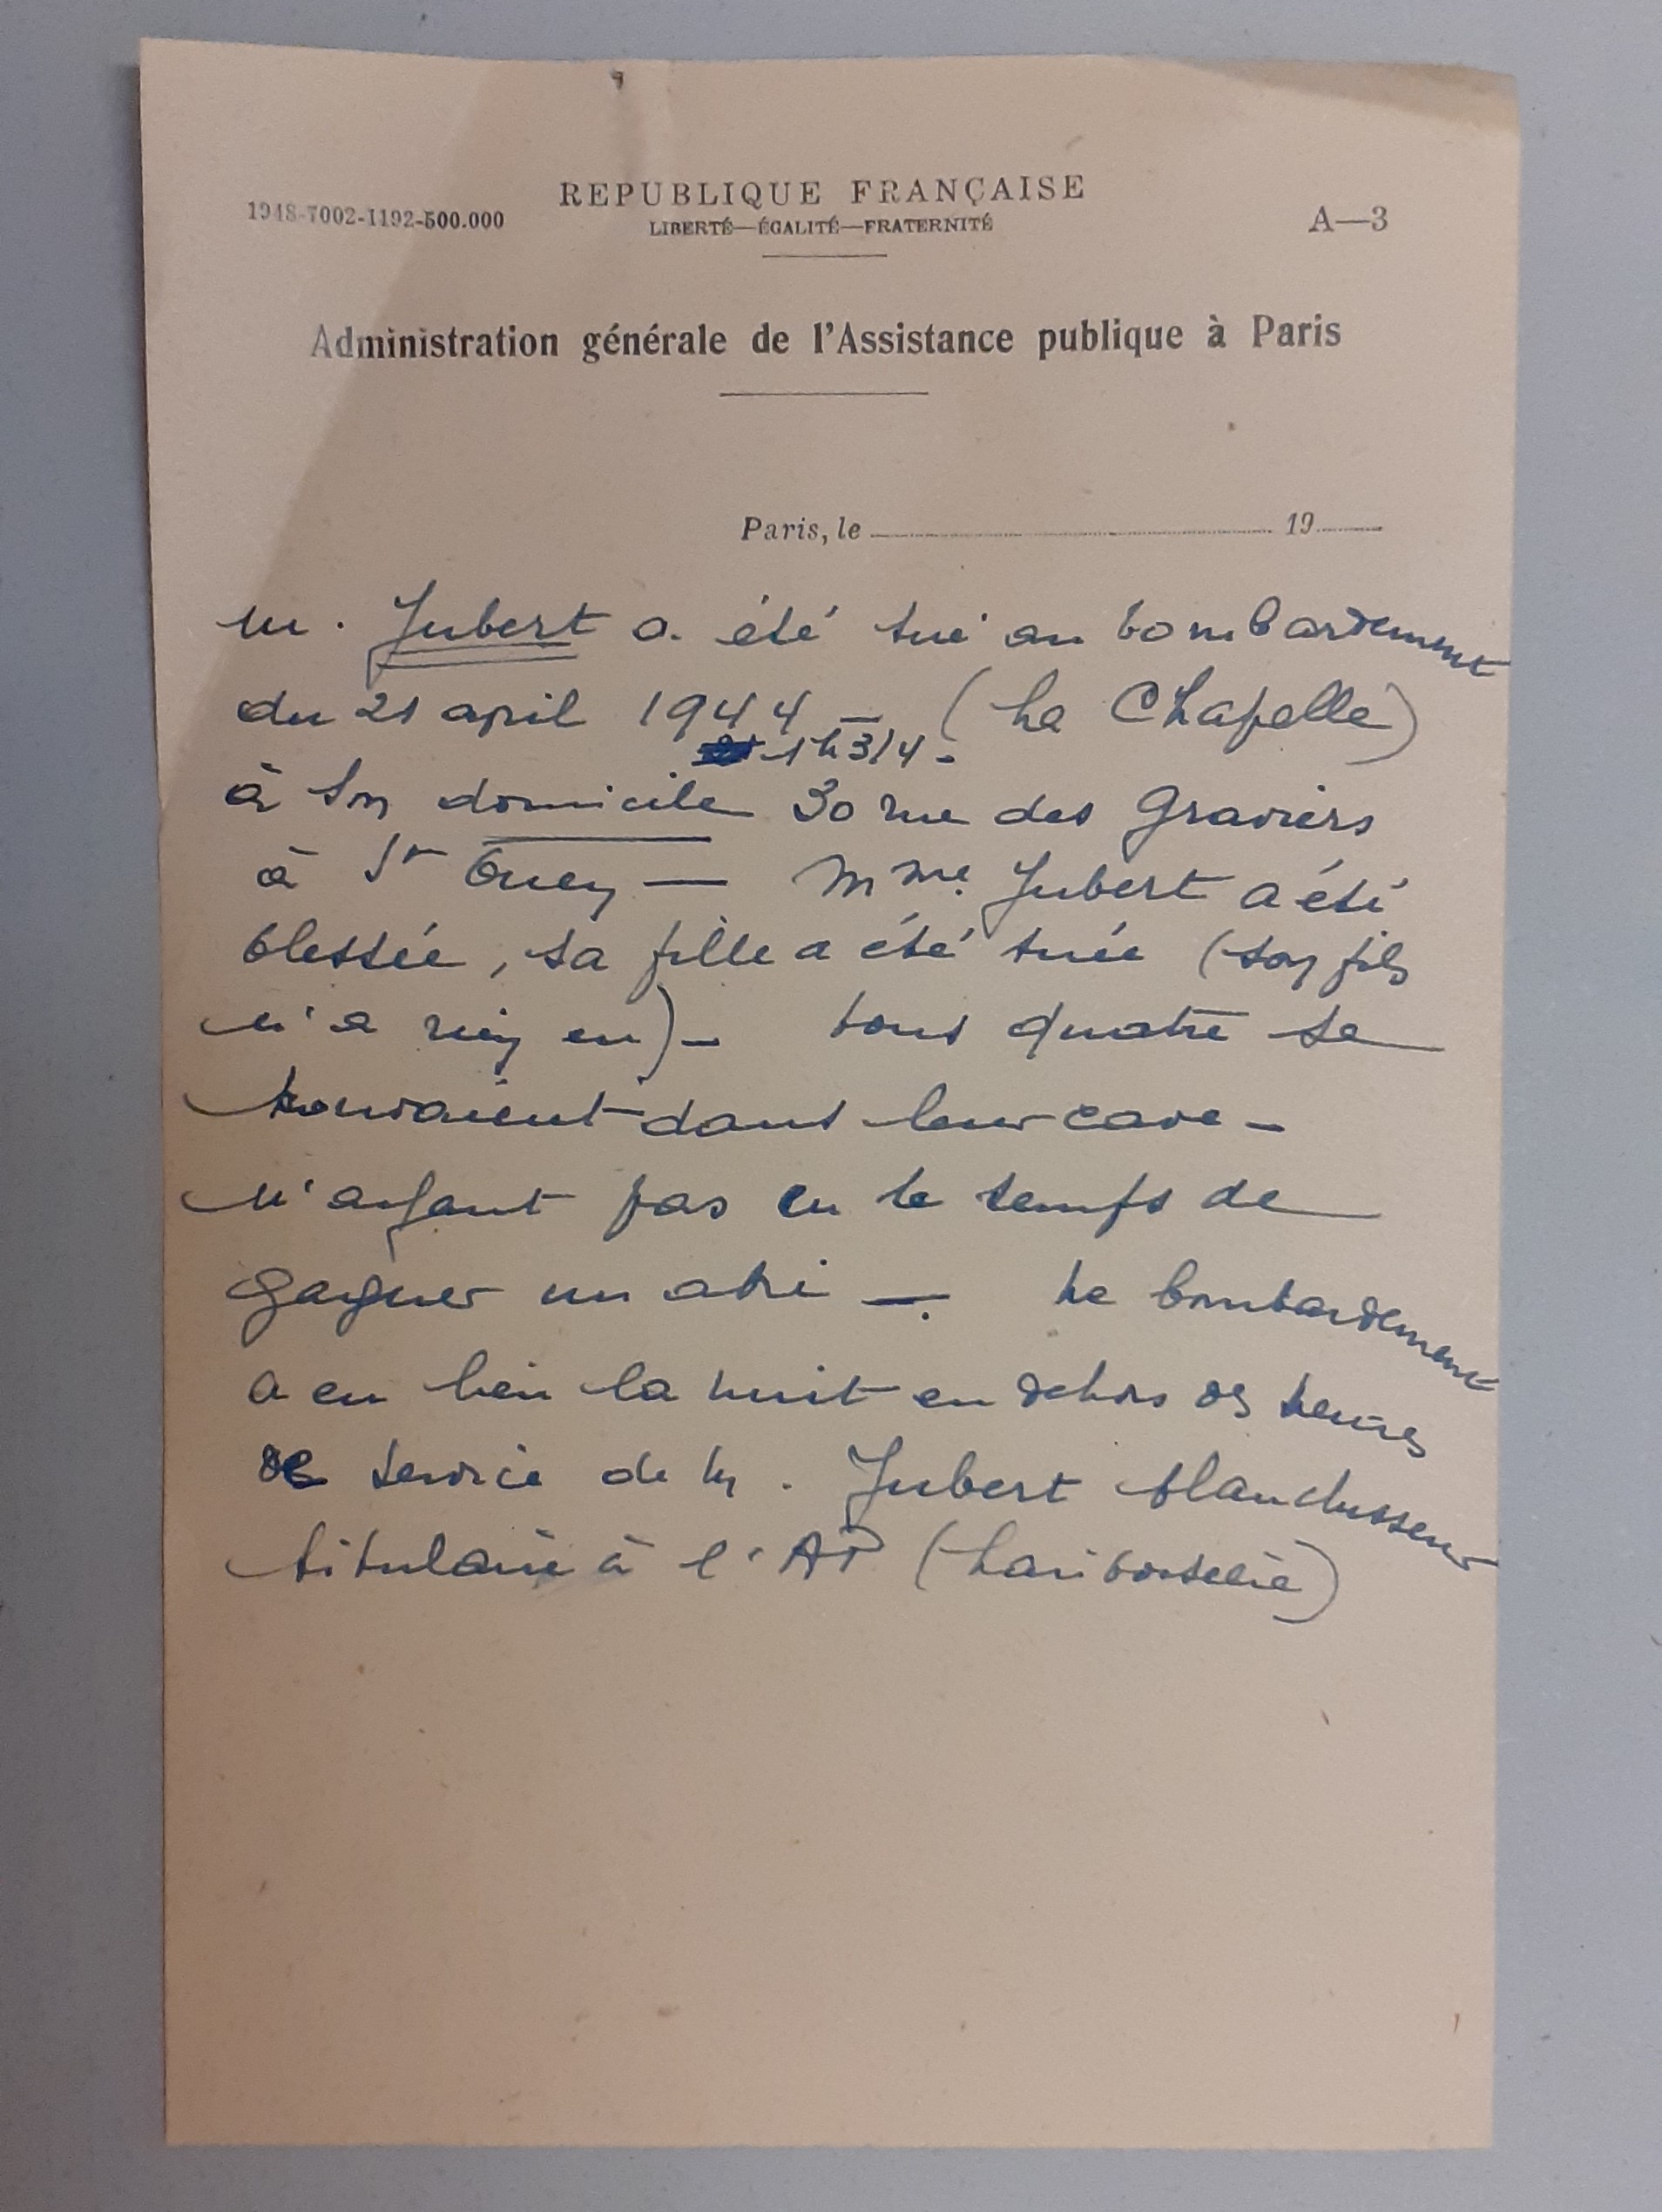 1948-7002-1192-500.000
REPUBLIQUE FRANÇAISE
LIBERTÉ—ÉGALITÉ—FRATERNITÉ
A—3
Administration générale de l'Assistance publique à Paris
Paris, le 19
M. Jubert a été tué au bombardement
du 21 april 1944 — (La Chapelle)
1h3/4 -
à son domicile 30 rue des Graviers
à St Ouen — Mme. Jubert a été
blessée, sa fille a été tuée (son fils
n'a rien eu) - tous quatre se
trouvaient dans leur cave -
n'ayant pas eu le temps de
gagner un abri —. Le bombardement
a eu lieu la nuit en dehors des heures
de service de M. Jubert blanchisseur
titulaire à l'AP (Lariboisière)